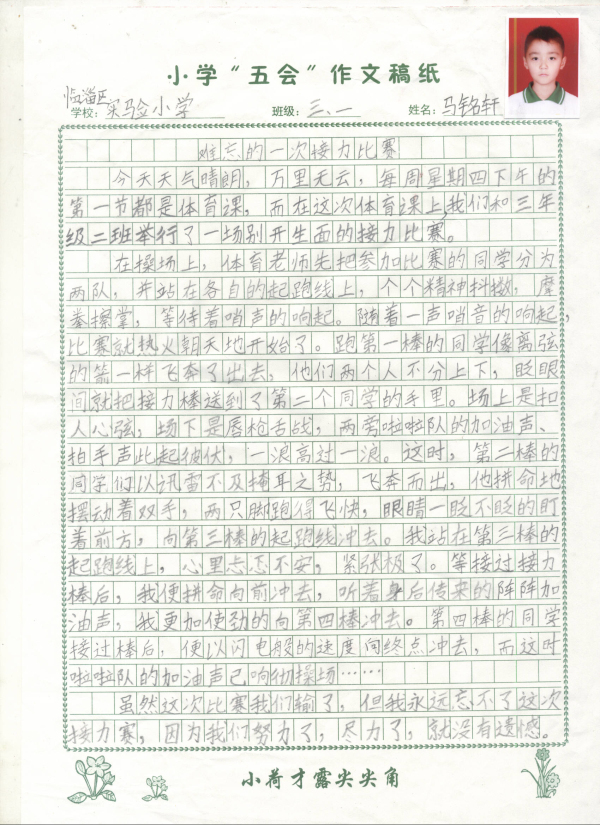 小学“五会”作文稿纸
临淄区
学校：实验小学 班级：三、一 姓名：马铭轩
难忘的一次接力比赛
今天天气晴朗，万里无云，每周星期四下午的
第一节都是体育课，而在这次体育课上我们和三年
级二班举行了一场别开生面的接力比赛。
在操场上，体育老师先把参加比赛的同学分为
两队，并站在各自的起跑线上，个个精神抖擞，摩
拳擦掌，等待着哨声的响起。随着一声哨音的响起，
比赛就热火朝天地开始了。跑第一棒的同学像离弦
的箭一样飞奔了出去，他们两个人不分上下，眨眼
间就把接力棒送到了第二个同学的手里。场上是扣
人心弦，场下是唇枪舌战，两旁啦啦队的加油声、
拍手声此起彼伏，一浪高过一浪。这时，第二棒的
同学们以讯雷不及掩耳之势，飞奔而出，他拼命地
摆动着双手，两只脚跑得飞快，眼睛一眨不眨的盯
着前方，向第三棒的起跑线冲去。我站在第三棒的
起跑线上，心里忐忑不安，紧张极了。等接过接力
棒后，我便拼命向前冲去，听着身后传来的阵阵加
油声，我更加使劲的向第四棒冲去。第四棒的同学
接过棒后，便以闪电般的速度向终点冲去，而这时
啦啦队的加油声已响彻操场……
虽然这次比赛我们输了，但我永远忘不了这次
接力赛，因为我们努力了，尽力了，就没有遗憾。
小荷才露尖尖角